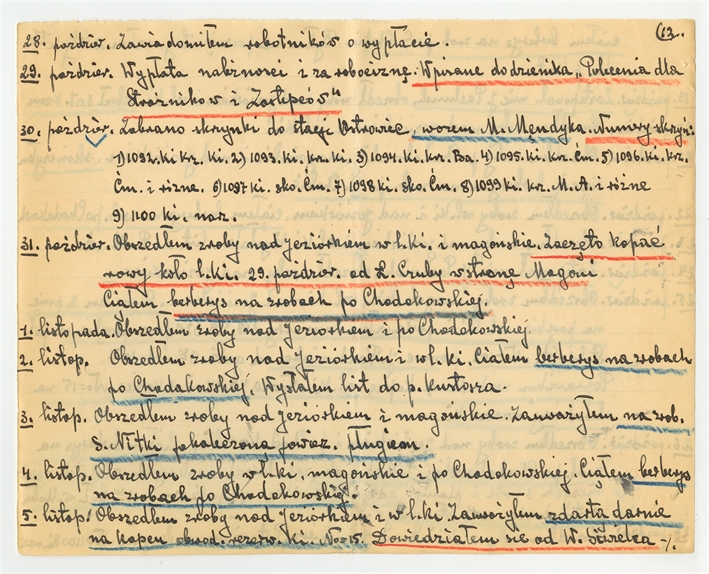 63.
28. paździer. Zawiadomiłem robotników o wypłacie.
29. paździer. Wypłata należności i za robociznę. Wpisane do dziennika „Polecenia dla
Strażników i Zastępców"
30. paździer. Zabrano skrzynki do stacje Ostrowiec, wozem M. Mendyka. Numery skrzyń:
1) 1092. ki kr. ki. 2) 1093. ki. kr. ki. 3) 1094. ki. kr. Ba. 4) 1095. ki. kr. Ćm. 5) 1096. ki. kr.
Ćm. i różne. 6) 1097 ki. sko. Ćm. 7) 1098 ki. sko. Ćm. 8) 1099 ki. kr. M. A. i różne
9) 1100 ki. nar.
31. paździer. Obszedłem zroby nad Jeziorkiem w l. ki. i magońskie. zaczęto kopać
rowy koło l. ki. 29. paździr. od L. Cruby w stronę Magoni
Ciąłem berberys na zrobach po Chodakowskiej.
1. listopada. Obszedłem zroby nad Jeziorkiem i po Chodakowskiej.
2. listop. Obszedłem zroby nad Jeziorkiem i w l. ki. Ciąłem berberys na zrobach
po Chodakowskiej. Wysłałem list do p.
3. listop. Obszedłem zroby nad Jeziorkiem i magońskie. Zauważyłem na zrob.
S. Nitki pokaleczoną powierz. pługiem.
4. listop. Obszedłem zroby w l. ki. magońskie i po Chodakowskiej. Ciąłem berberys
na zrobach po Chodakowskiej.
5. listop. Obszedłem zroby nad Jeziorkiem i w l. ki. Zauważyłem zdartą darnie
na kopcu obwod. rezerw. ki. No=15. Dowiedziałem się od W. -/.